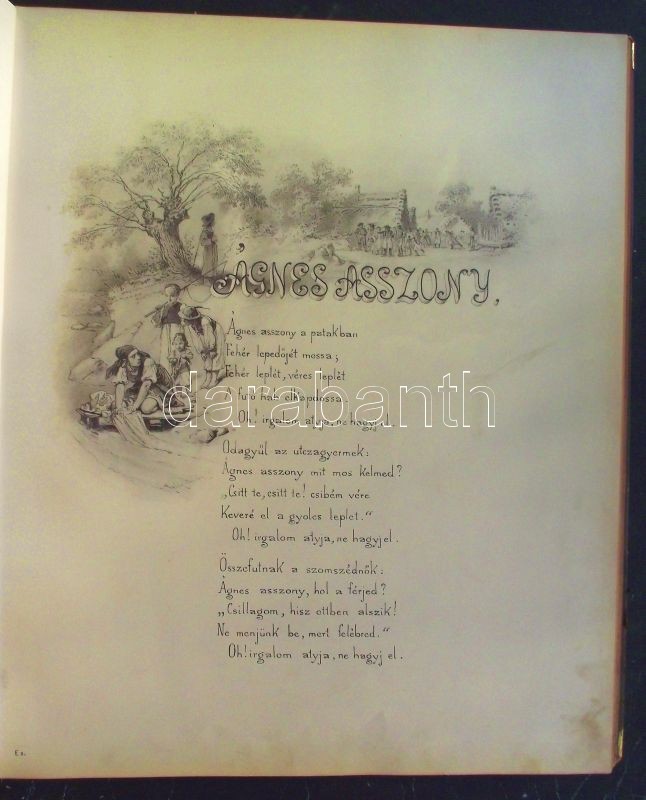 ÁGNES ASSZONY.
Ágnes asszony a patakban
Fehér lepedőjét mossa;
Fehér leplét, véres leplét
A futó hab elkapdossa.
Oh! irgalom atyja, ne hagyj el.
Odagyűl az utczagyermek:
Ágnes asszony mit mos kelmed?
„Csitt te, csitt te! csibém vére
Keveré el a gyolcs leplet.“
Oh! irgalom atyja, ne hagyj el.
Összefutnak a szomszédnők:
Ágnes asszony, hol a férjed?
„Csillagom, hisz ottben alszik!
Ne menjünk be, mert felébred.“
Oh! irgalom atyja, ne hagyj el.
darabanth